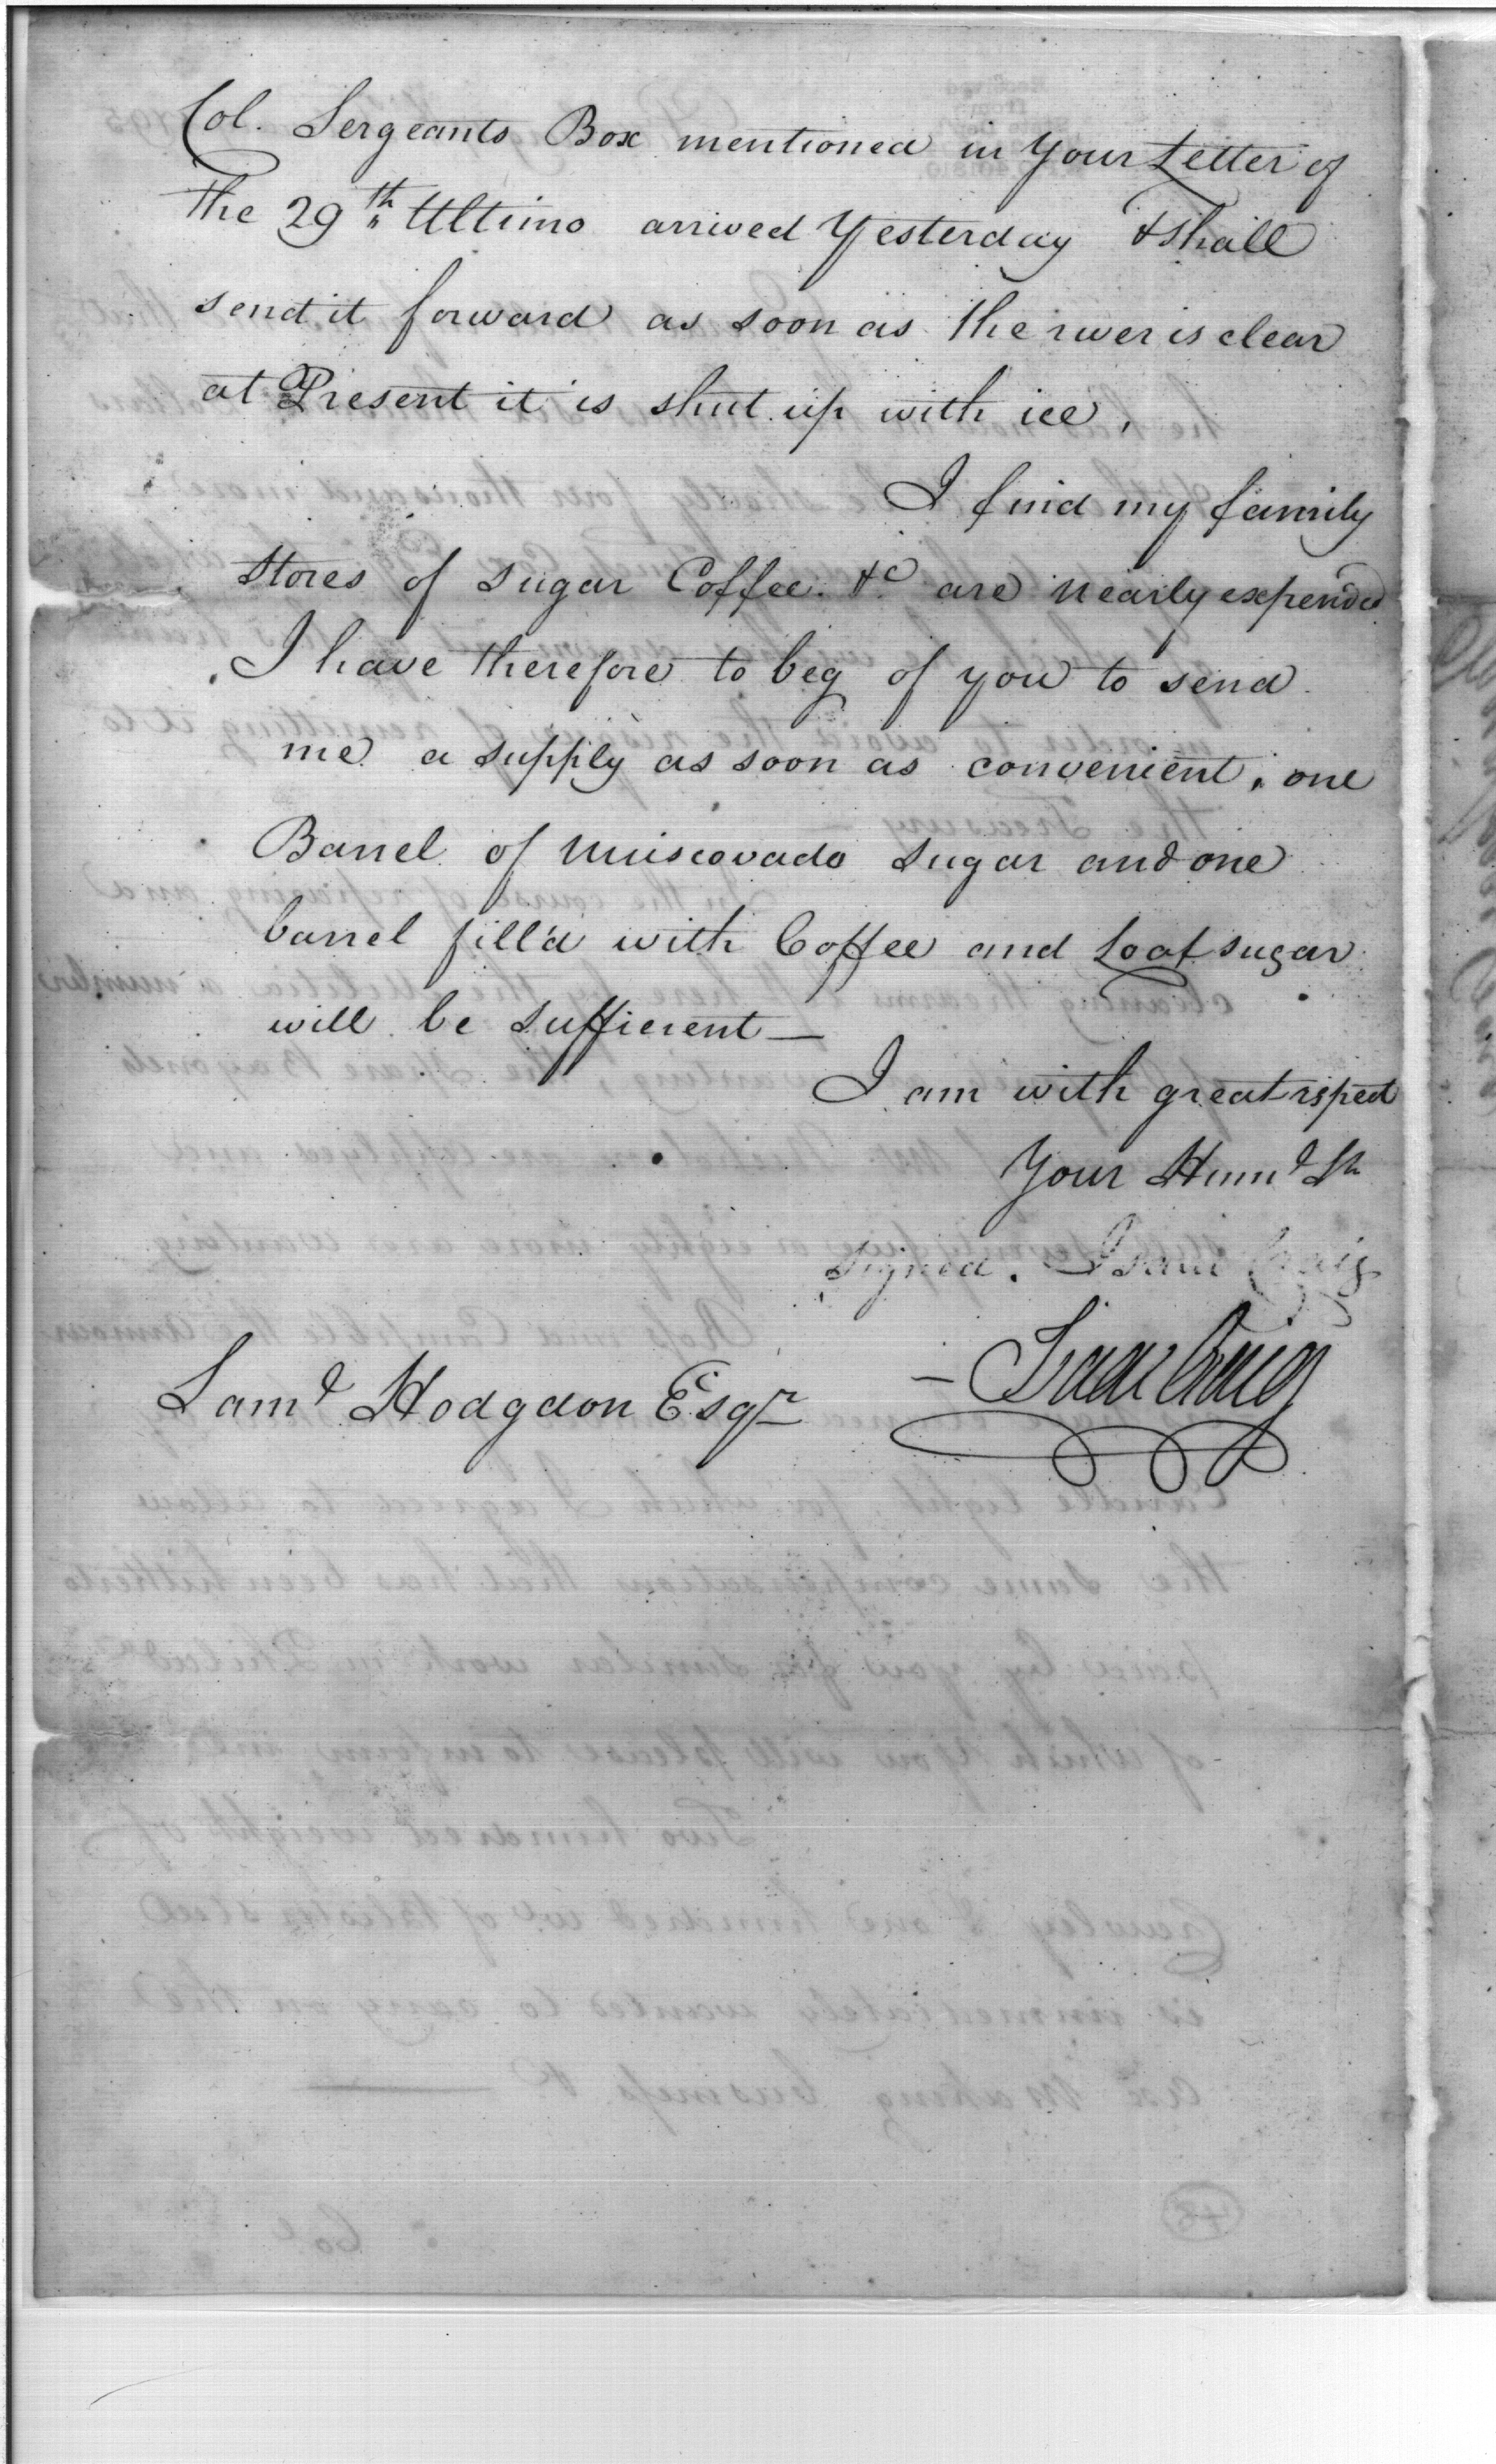 Col. Sergeants Box mentioned in Your Letter of
the 29th Ultimo arrived Yesterday & Shall
send it forward as soon as the river is clear
at Present it is shut up with ice,
I find my family
stores of sugar Coffee. &c are nearly expended
I have therefore to beg of you to send
me a supply as soon as convenient, one
Barrel of Muscovado sugar and one
barrel fill'd with Coffee and Loaf sugar
will be sufficient—
I am with great respect
Your Humd St
Signed. Isaac Craig
– Isaac Craig
Saml Hodgdon Esqr